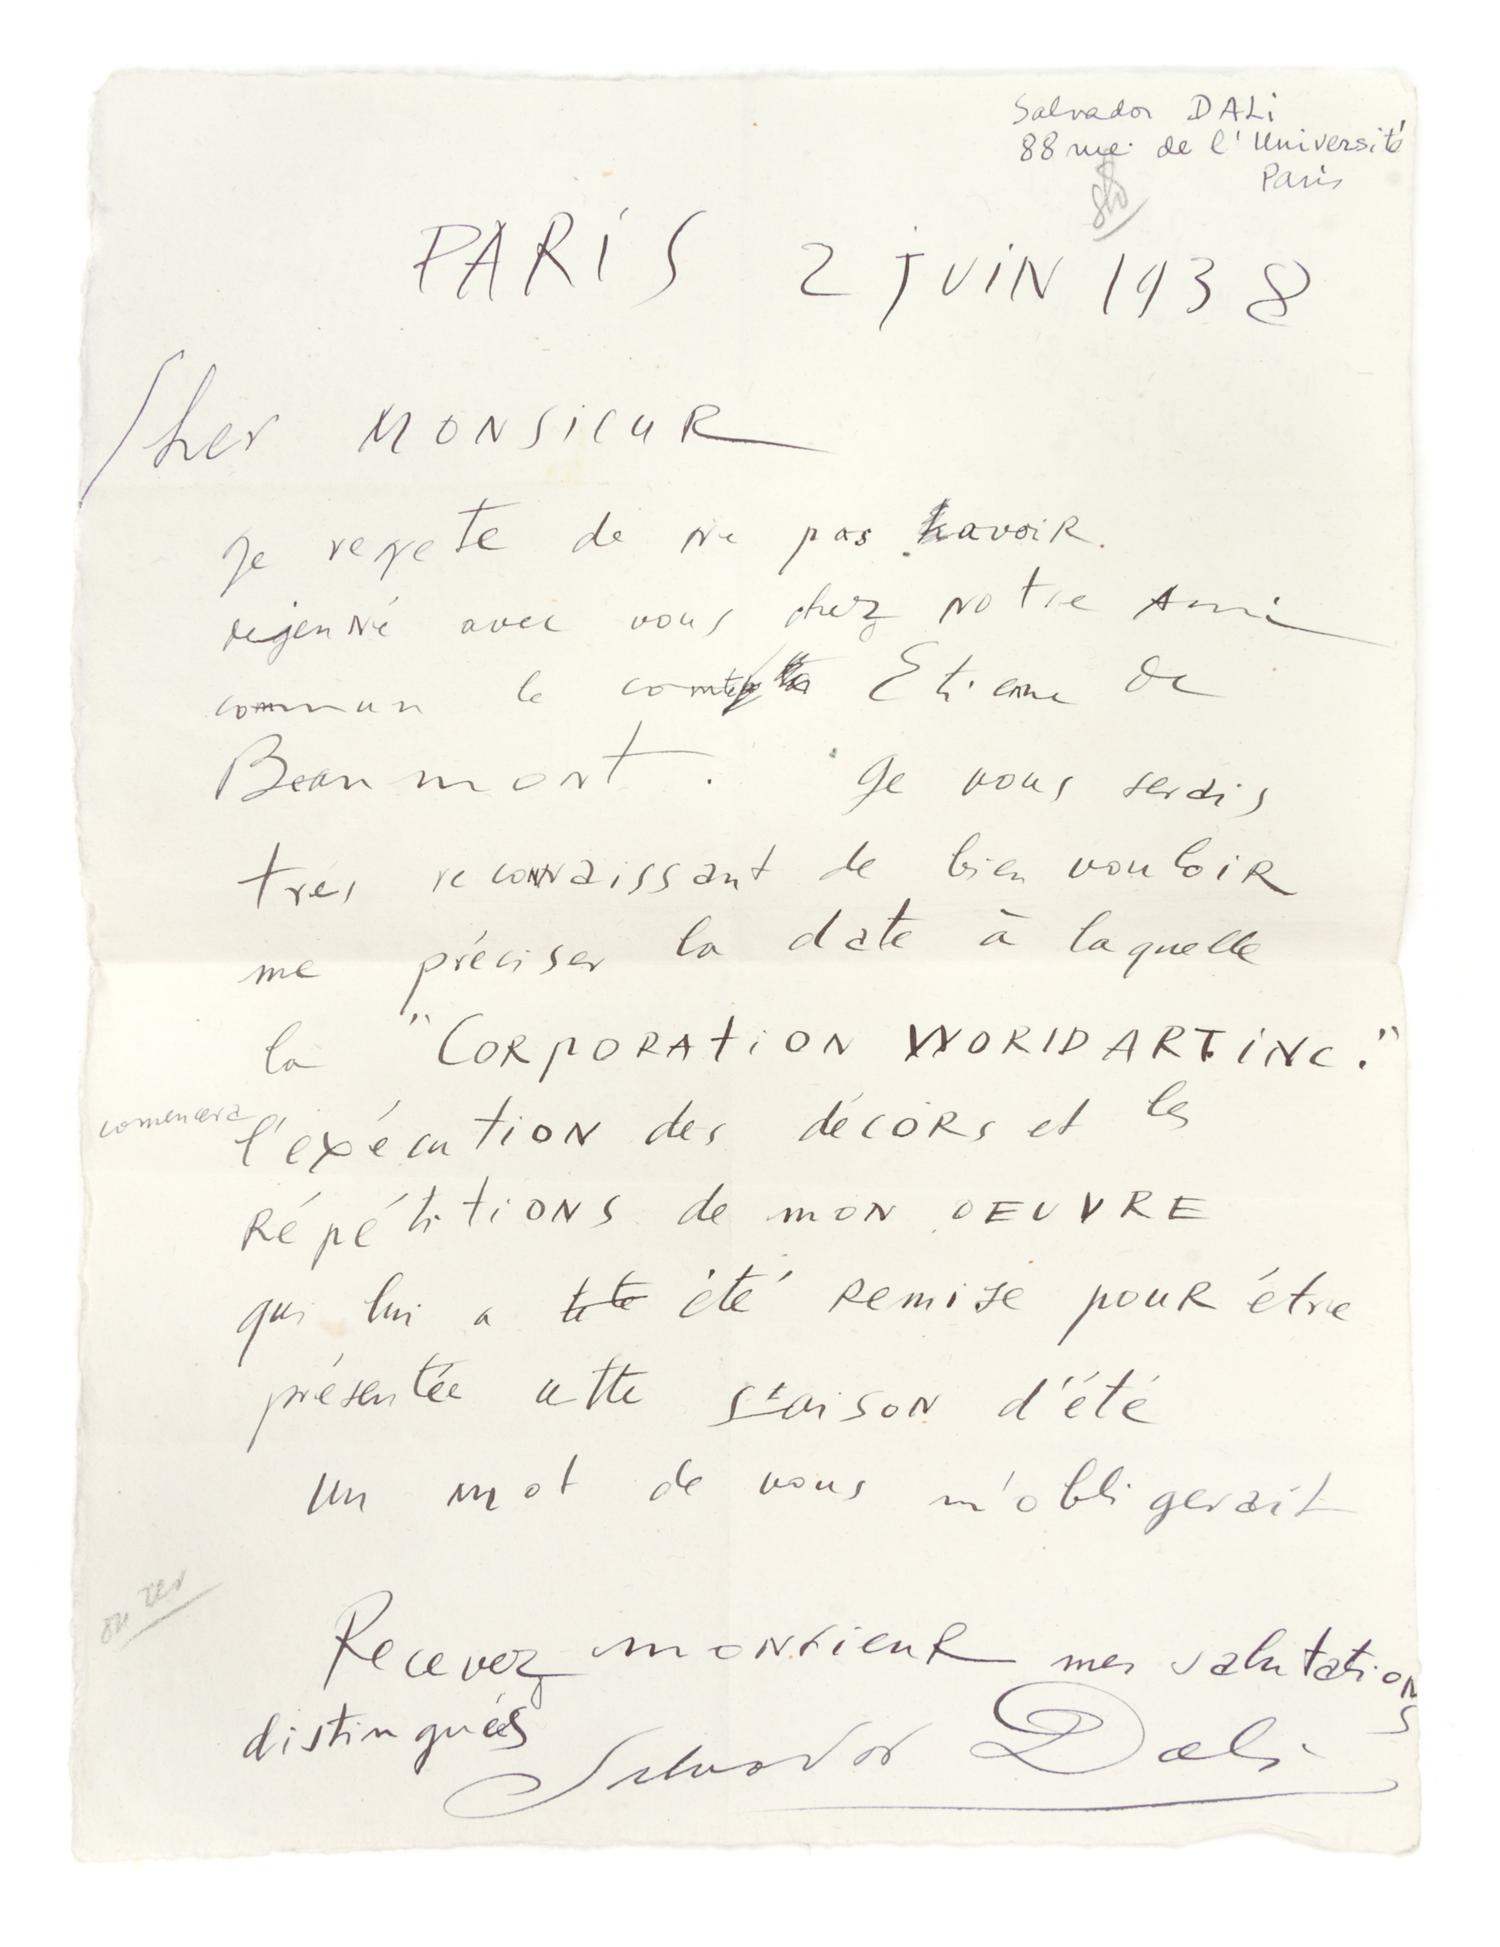 Salvador DALi
88 rue de l'Université
Paris
PARiS 2 juiN 1938
Cher MONSiEUR
Je regrete de ne pas avoiR
dejeuNé avec vous chez Notre Ami
commun le comte Etienne de
Beaumont. Je vous serais
très reconnaissant de bien vouloiR
me préciser la date à laquelle
la "CORpORAtiON WORlD ART iNC."
comencera l'exécutiON des décORs et les
RépétitiONS de mON OEUVRE
qui lui a été Remise pouR être
présentée cette saisoN d'été
Un mot de vous m'obligerait
Recevez monsieuR mes salutatioNS
distinguées
Salvador Dali